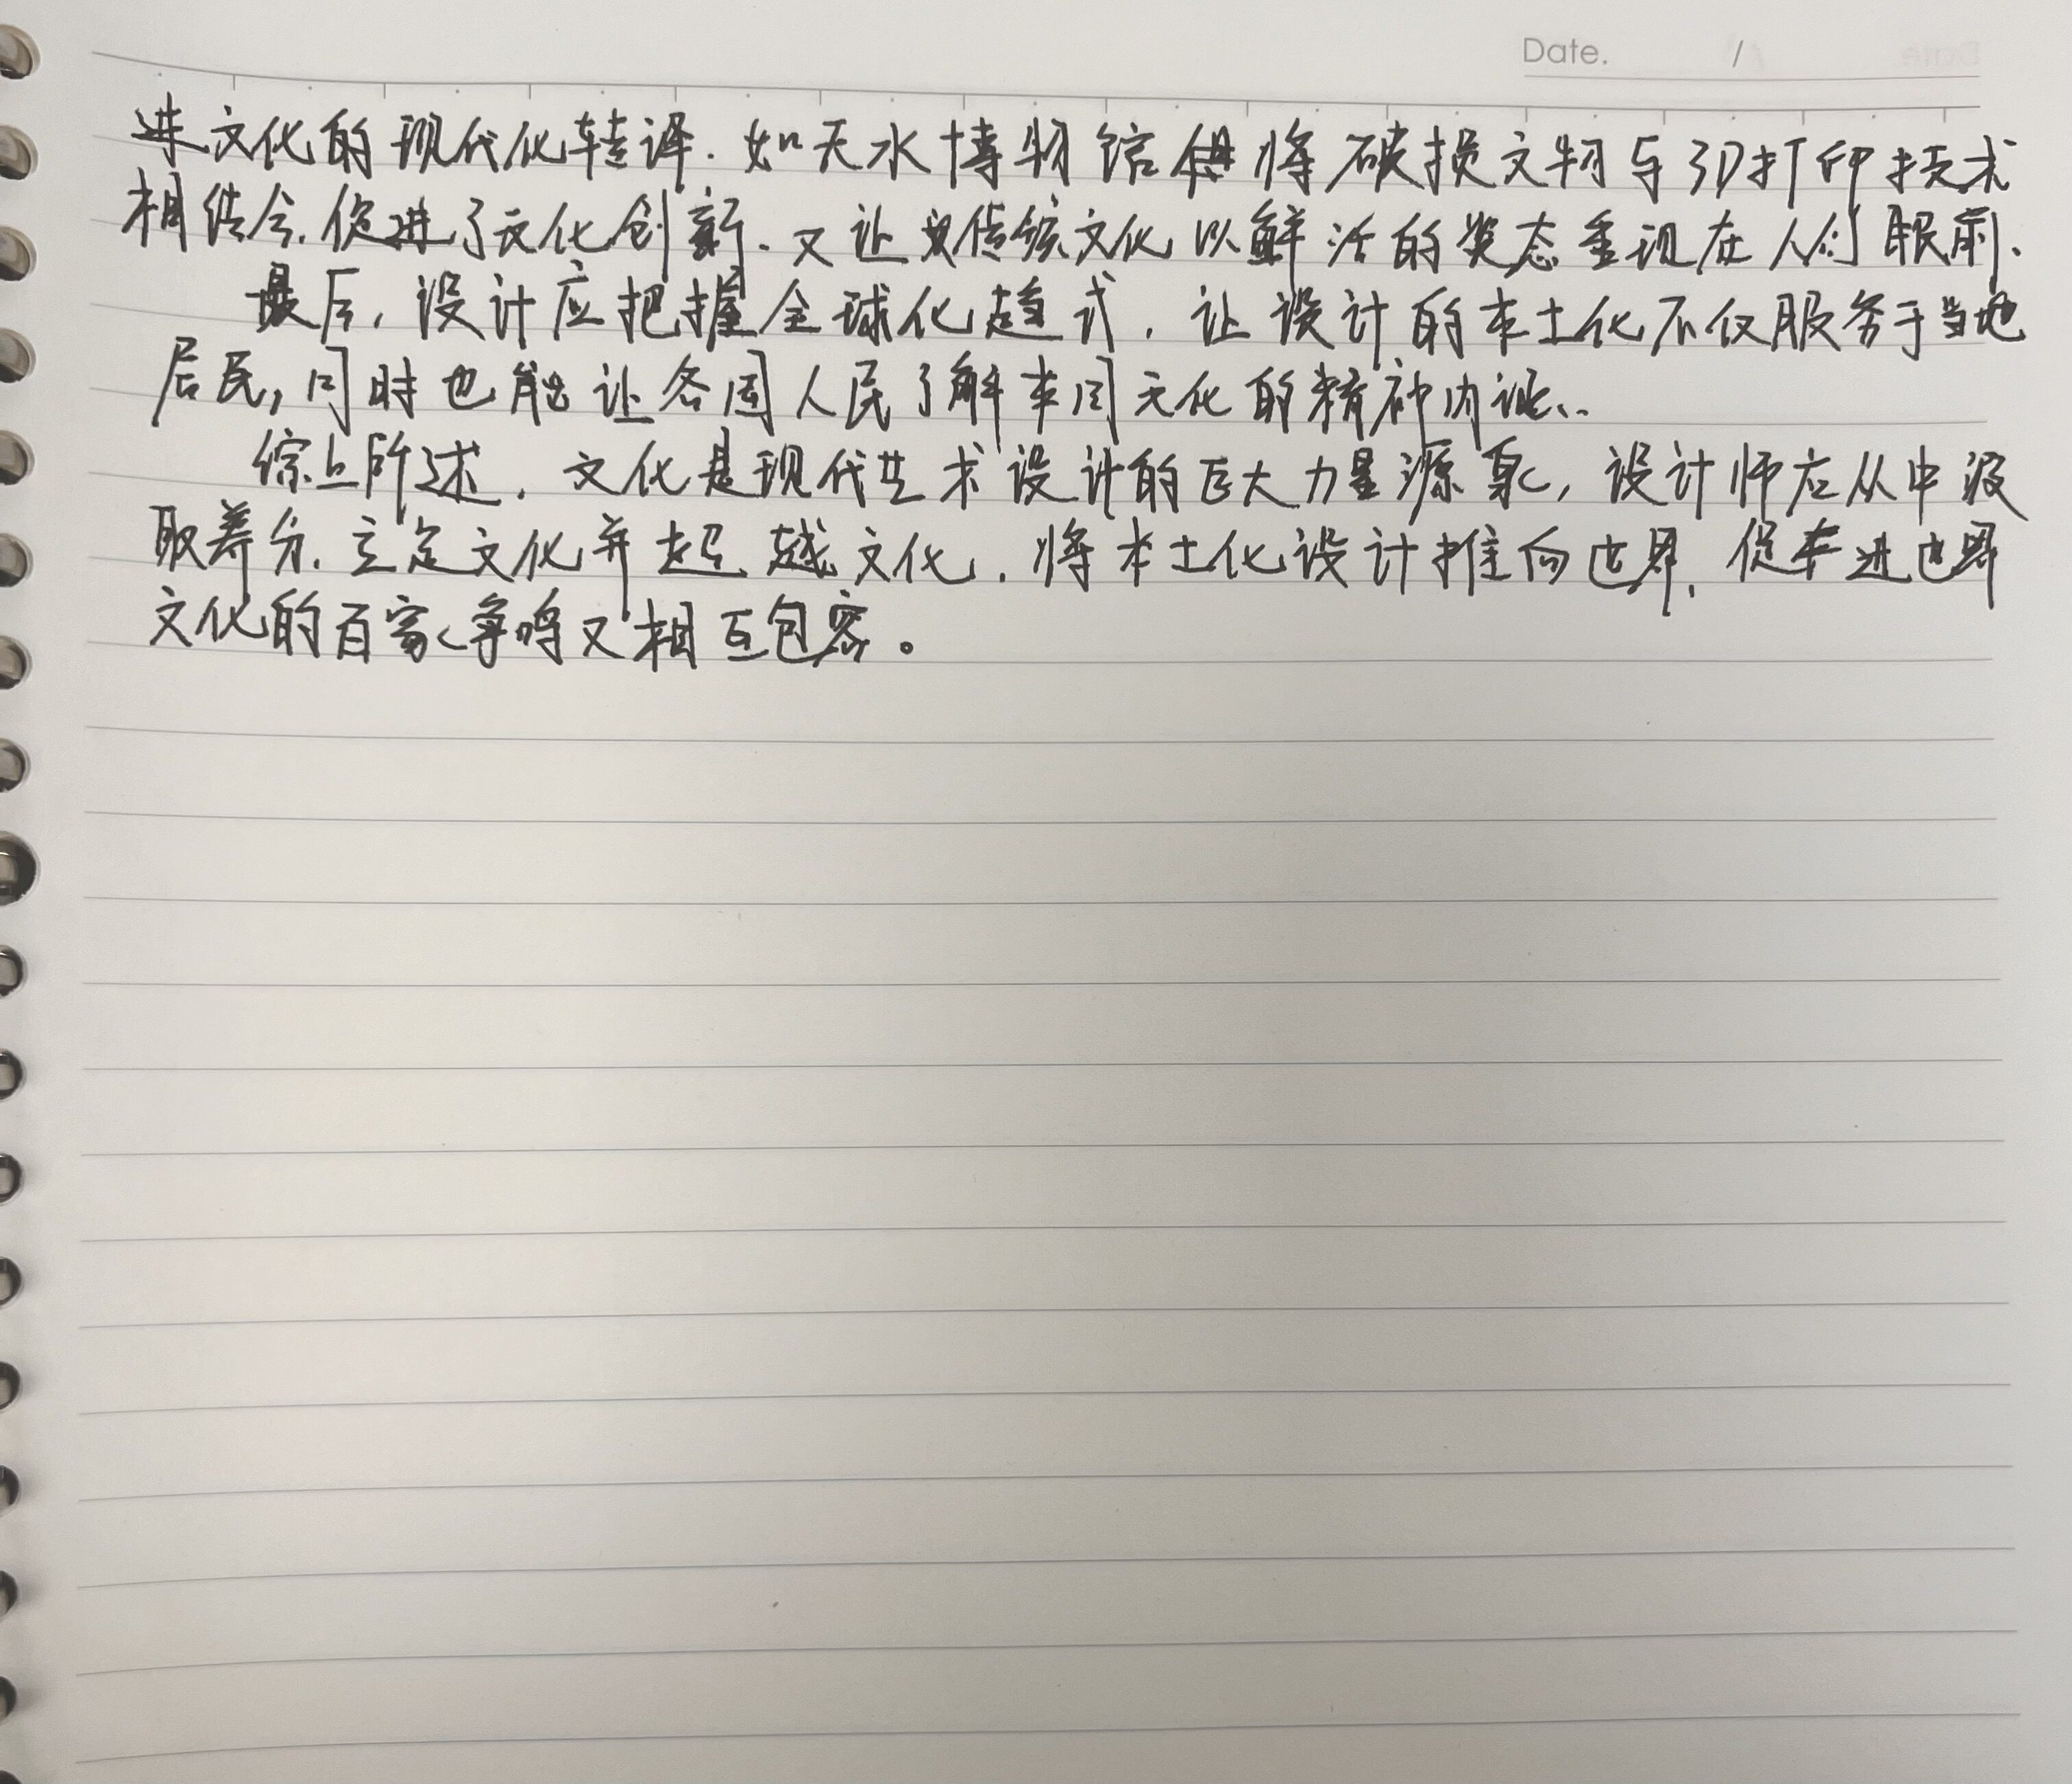 Date. /
进文化的现代化转译.如天水博物馆将破损文物与3D打印技术
相结合.促进了文化创新.又让传统文化以鲜活的姿态重现在人们眼前.
最后,设计应把握全球化趋式,让设计的本土化不仅服务于当地
居民,同时也能让各国人民了解本国文化的精神内涵.
综上所述,文化是现代艺术设计的巨大力量源泉,设计师应从中汲
取养分.立足文化并超越文化,将本土化设计推向世界,促进世界
文化的百家争鸣又相互包容。